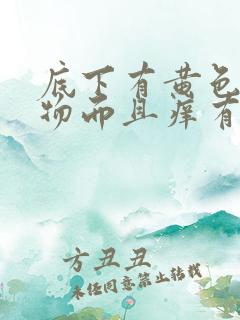 底下有黄色
物而且痒有
方丑丑
未经同意禁止转载